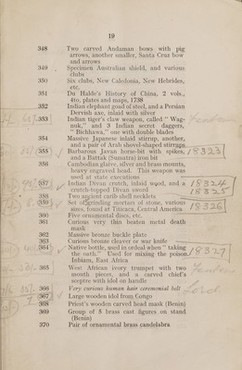 19
348 Two carved Andaman bows with pig
arrows, another smaller, Santa Cruz bow
and arrows
349 Specimen Australian shield, and various
clubs
350 Six clubs, New Caledonia, New Hebrides,
etc.
351 Du Halde's History of China, 2 vols.,
4to, plates and maps, 1738
352 Indian elephant goad of steel, and a Persian
Dervish axe, inlaid with silver
353 Indian tiger's claw weapon, called "Wag-
nuk," and 3 Indian secret daggers,
"Bichhava," one with double blades
354 Massive Japanese inlaid stirrup, another,
and a pair of Arab shovel-shaped stirrups
355 Barbarous Javan horse-bit with spikes, 18323
and a Battak (Sumatra) iron bit
356 Cambodian glaive, silver and brass mounts,
heavy engraved head. This weapon was
used at state executions
357 Indian Divan crutch, inlaid wood, and a 18324
crutch-topped Divan sword 18325
358 Two ancient earth shell necklets
359 Set of mortars of stone, various 18326
sizes, found at Titicaca, Central America
360 Five ornamental discs, etc.
361 Curious very thin beaten metal death
mask
362 Massive bronze buckle plate
363 Curious bronze cleaver or war knife
364 Native bottle, used in ordeal when "taking 18327
the oath." Used for mixing the poison
East Africa
365 West African ivory trumpet with two
mouth pieces, and a carved chief's
sceptre with idol on handle
366 Very curious human hair ceremonial belt
367 Large wooden idol from Congo
368 Priest's wooden carved head mask (Benin)
369 Group of 8 brass cast figures on stand
(Benin)
370 Pair of ornamental brass candelabra